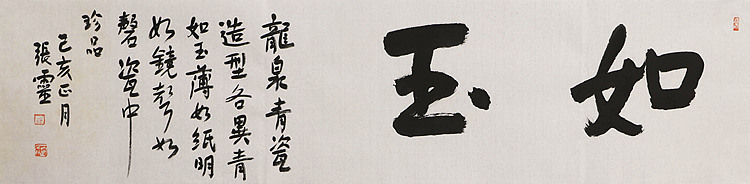 如玉
龍泉青瓷
造型各異青
如玉薄如紙明
如鏡聲如
磬瓷中
珍品
己亥正月
張靈